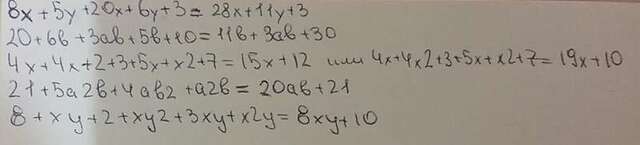 8x+5y+20x+6y+3=28x+11y+3
20+6b+3ab+5b+10=11b+3ab+30
4x+4x+2+3+5x+x2+7=15x+12 или 4x+4x2+3+5x+x2+7=19x+10
21+5a2b+4ab2+a2b=20ab+21
8+xy+2+xy2+3xy+x2y=8xy+10